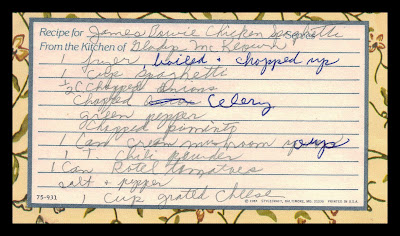 Recipe for James Bowie Chicken Spaghetti Serves
From the Kitchen of Gladys Mc Keown
1 fryer, boiled + chopped up
1 Cup Spaghetti
2 C Chopped Onions
Chopped Celery
green pepper
Chopped pimento
1 Can Cream mushroom soup
1 T Chili powder
1 Can Rotel tomatoes
salt + pepper
75-931 1 Cup grated Cheese
PRINTED IN U.S.A.